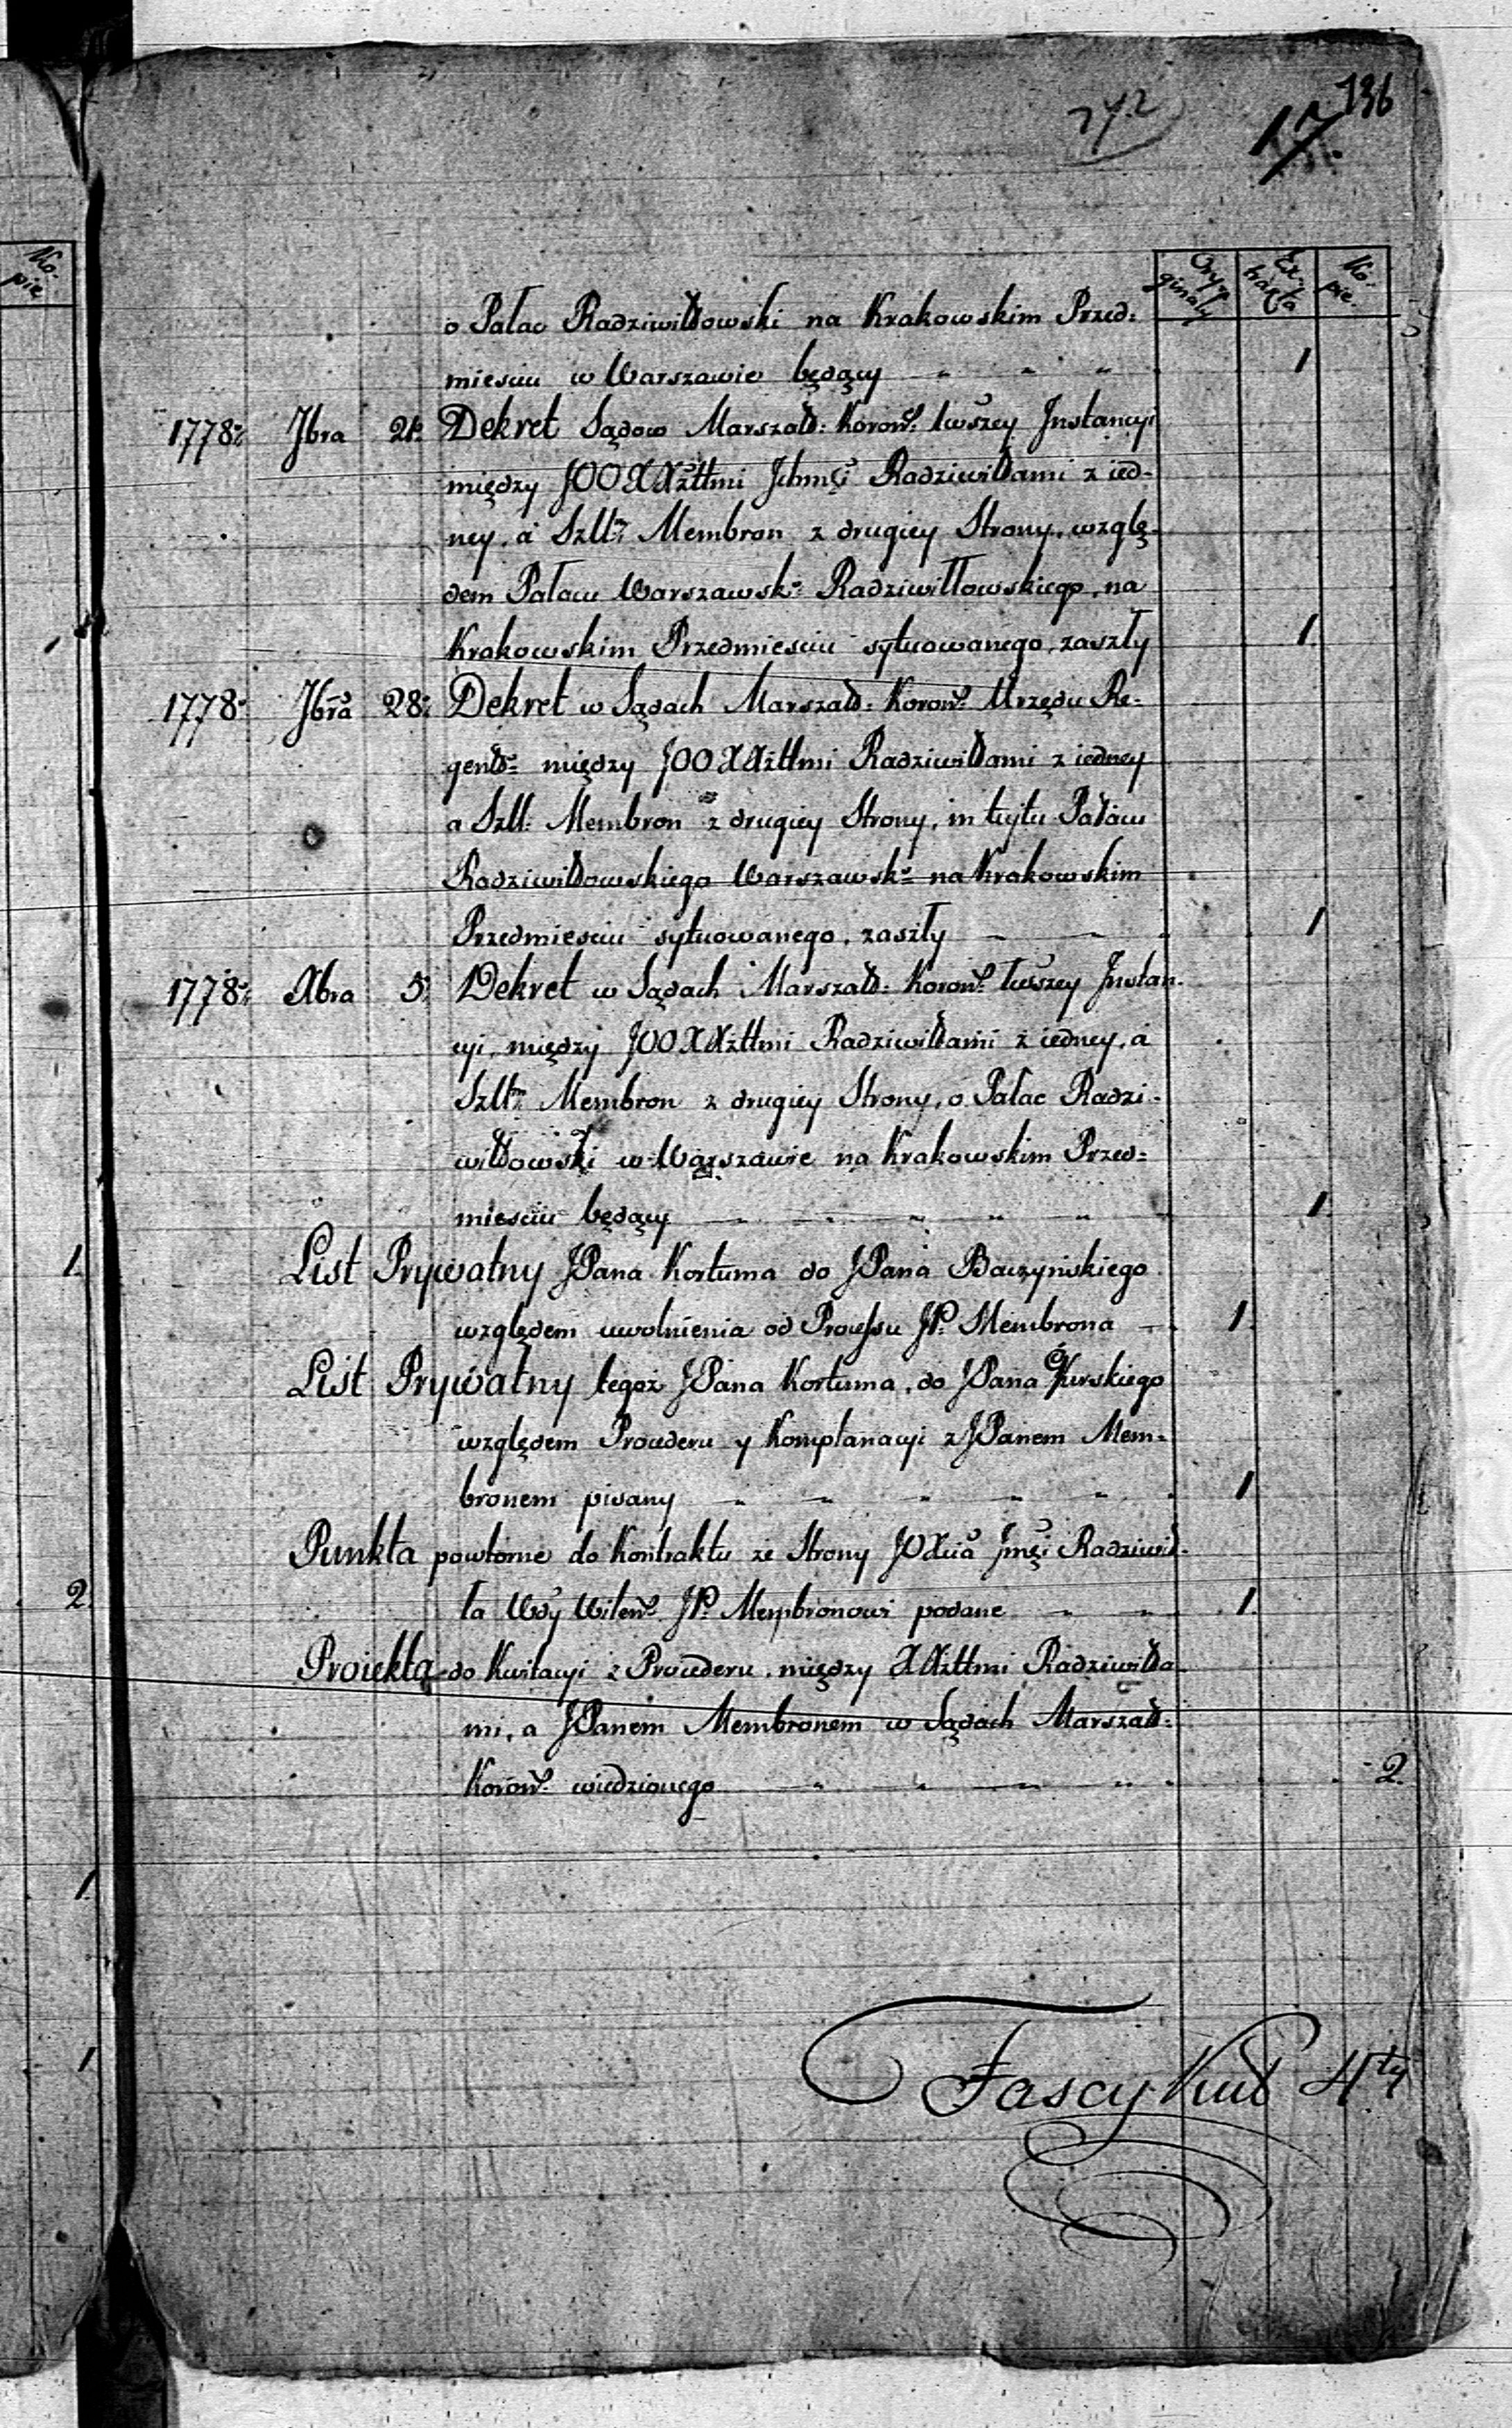 136
17
Ory- Ex- Ko-
ginały trakta pie.
o Pałac Radziwiłłowski na Krakowskim Przed:
miesciu w Warszawie będący 1
1778: Jbra 21: Dekret Sądow Marszał: Koron: Iwszey Instancyi
między JOO XXżttmi Jchmći Radziwiłłami z ied-
ney, a Szltt: Membron z drugiey Strony, wzglę-
dem Pałacu Warszawsk: Radziwiłłowskiego, na
Krakowskim Przedmiesciu sytuowanego, zaszły 1
1778: Jbra 28: Dekret w Sądach Marszał: Koron: Urzędu Re-
gent: między JOO XXżttmi Radziwiłłami z iedney
a Szltt: Membron z drugiey Strony, in Pałacu
Radziwiłłowskiego Warszawsk: na Krakowskim
Przedmiesciu sytuowanego, zaszły 1
1778: Xbra 5: Dekret w Sądach Marszał: Koron: Iwszey Instan-
cyi, między JOO XXżttmi Radziwiłłami z iedney, a
Szltt: Membron z drugiey Strony, o Pałac Radzi-
wiłłowski w Warszawie na Krakowskim Przed=
miesciu będący 1
List Prywatny JPana Kortuma do JPana Baczyńskiego
względem uwolnienia od Processu JP: Membrona 1
List Prywatny tegoż JPana Kortuma, do JPana
względem Proederu y Komplanacyi z JPanem Mem-
bronem pisany 1
Punkta powtorne do Kontraktu ze Strony JOXcia Jmći Radziwił-
ła Wdy Wilen: JP: Membronowi podane 1
Proiekta do Kwitacyi z Proederu, między XXżttmi Radziwiłła-
mi, a JPanem Membronem w Sądach Marszał:
Koron: wiedzionego 2.
Fascykuł 4ty
Ko-
pie
1.
2.
1.
1